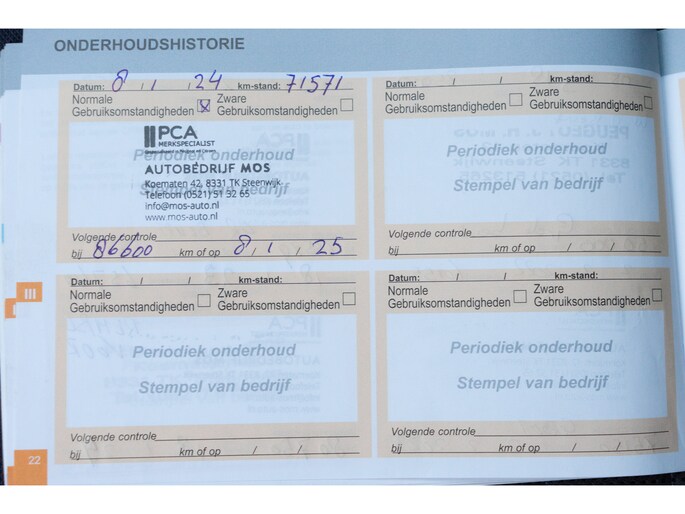 ONDERHOUDSHISTORIE
Datum: 8 / 1 / 24 km-stand: 71571
Normale Gebruiksomstandigheden X Zware Gebruiksomstandigheden
PCA
MERKSPECIALIST
Periodiek onderhoud
AUTOBEDRIJF MOS
Koematen 42, 8331 TK Steenwijk
Telefoon (0521) 51 32 65
Stempel van bedrijf
info@mos-auto.nl
www.mos-auto.nl
Volgende controle
bij 86600 km of op 8 / 1 / 25
Datum: / / km-stand:
Normale Gebruiksomstandigheden Zware Gebruiksomstandigheden
Periodiek onderhoud
Stempel van bedrijf
Volgende controle
bij km of op / /
Datum: / / km-stand:
Normale Gebruiksomstandigheden Zware Gebruiksomstandigheden
Periodiek onderhoud
Stempel van bedrijf
Volgende controle
bij km of op / /
Datum: / / km-stand:
Normale Gebruiksomstandigheden Zware Gebruiksomstandigheden
Periodiek onderhoud
Stempel van bedrijf
Volgende controle
bij km of op / /
III
22